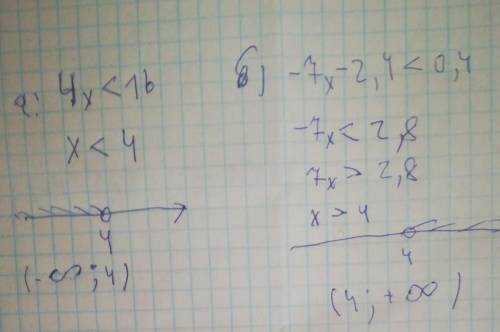 а) 4x < 16
x < 4
4
(-∞; 4)
б) -7x - 2,4 < 0,4
-7x < 2,8
7x > 2,8
x > 4
4
(4; +∞)